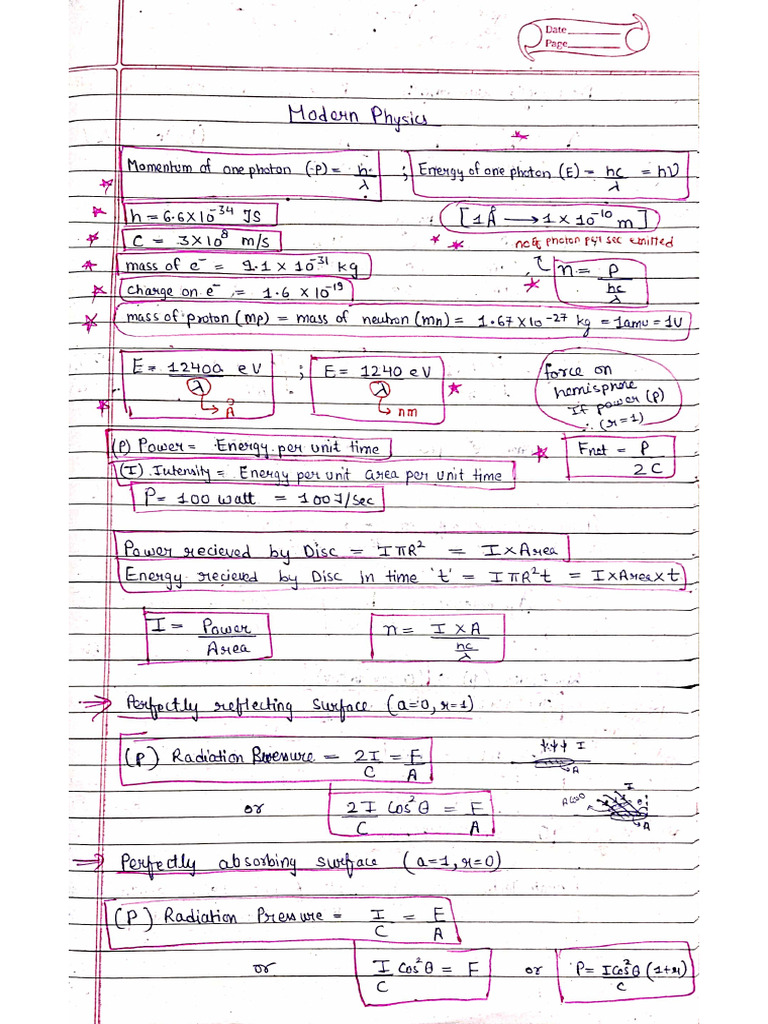 Date
Page
Modern Physics
Momentum of one photon (P) = h/λ ; Energy of one photon (E) = hc/λ = hν
h = 6.6×10⁻³⁴ JS [1Å → 1 × 10⁻¹⁰ m]
C = 3×10⁸ m/s no of photon per sec emitted
mass of e⁻ = 9.1 × 10⁻³¹ kg n = P/(hc/λ)
charge on e⁻ = 1.6 × 10⁻¹⁹
mass of proton (mp) = mass of neutron (mn) = 1.67×10⁻²⁷ kg = 1amu = 1U
E = 12400 eV/λ → Å ; E = 1240 eV/λ → nm
force on
hemisphere
If power (P)
∴ (r=1)
(P) Power = Energy per unit time
Fnet = P/2C
(I) Intensity = Energy per unit area per unit time
P = 100 watt = 100J/sec
Power recieved by Disc = IπR² = I×Area
Energy recieved by Disc in time 't' = IπR²t = I×Area×t
I = Power/Area n = I×A/(hc/λ)
⇒ Perfectly reflecting surface (a=0, r=1)
(P) Radiation Pressure = 2I/C = F/A
I
A
or 2I/C Cos²θ = F/A
I
A
⇒ Perfectly absorbing surface (a=1, r=0)
(P) Radiation Pressure = I/C = F/A
or I/C Cos²θ = F or P = ICos²θ/C (1+r)